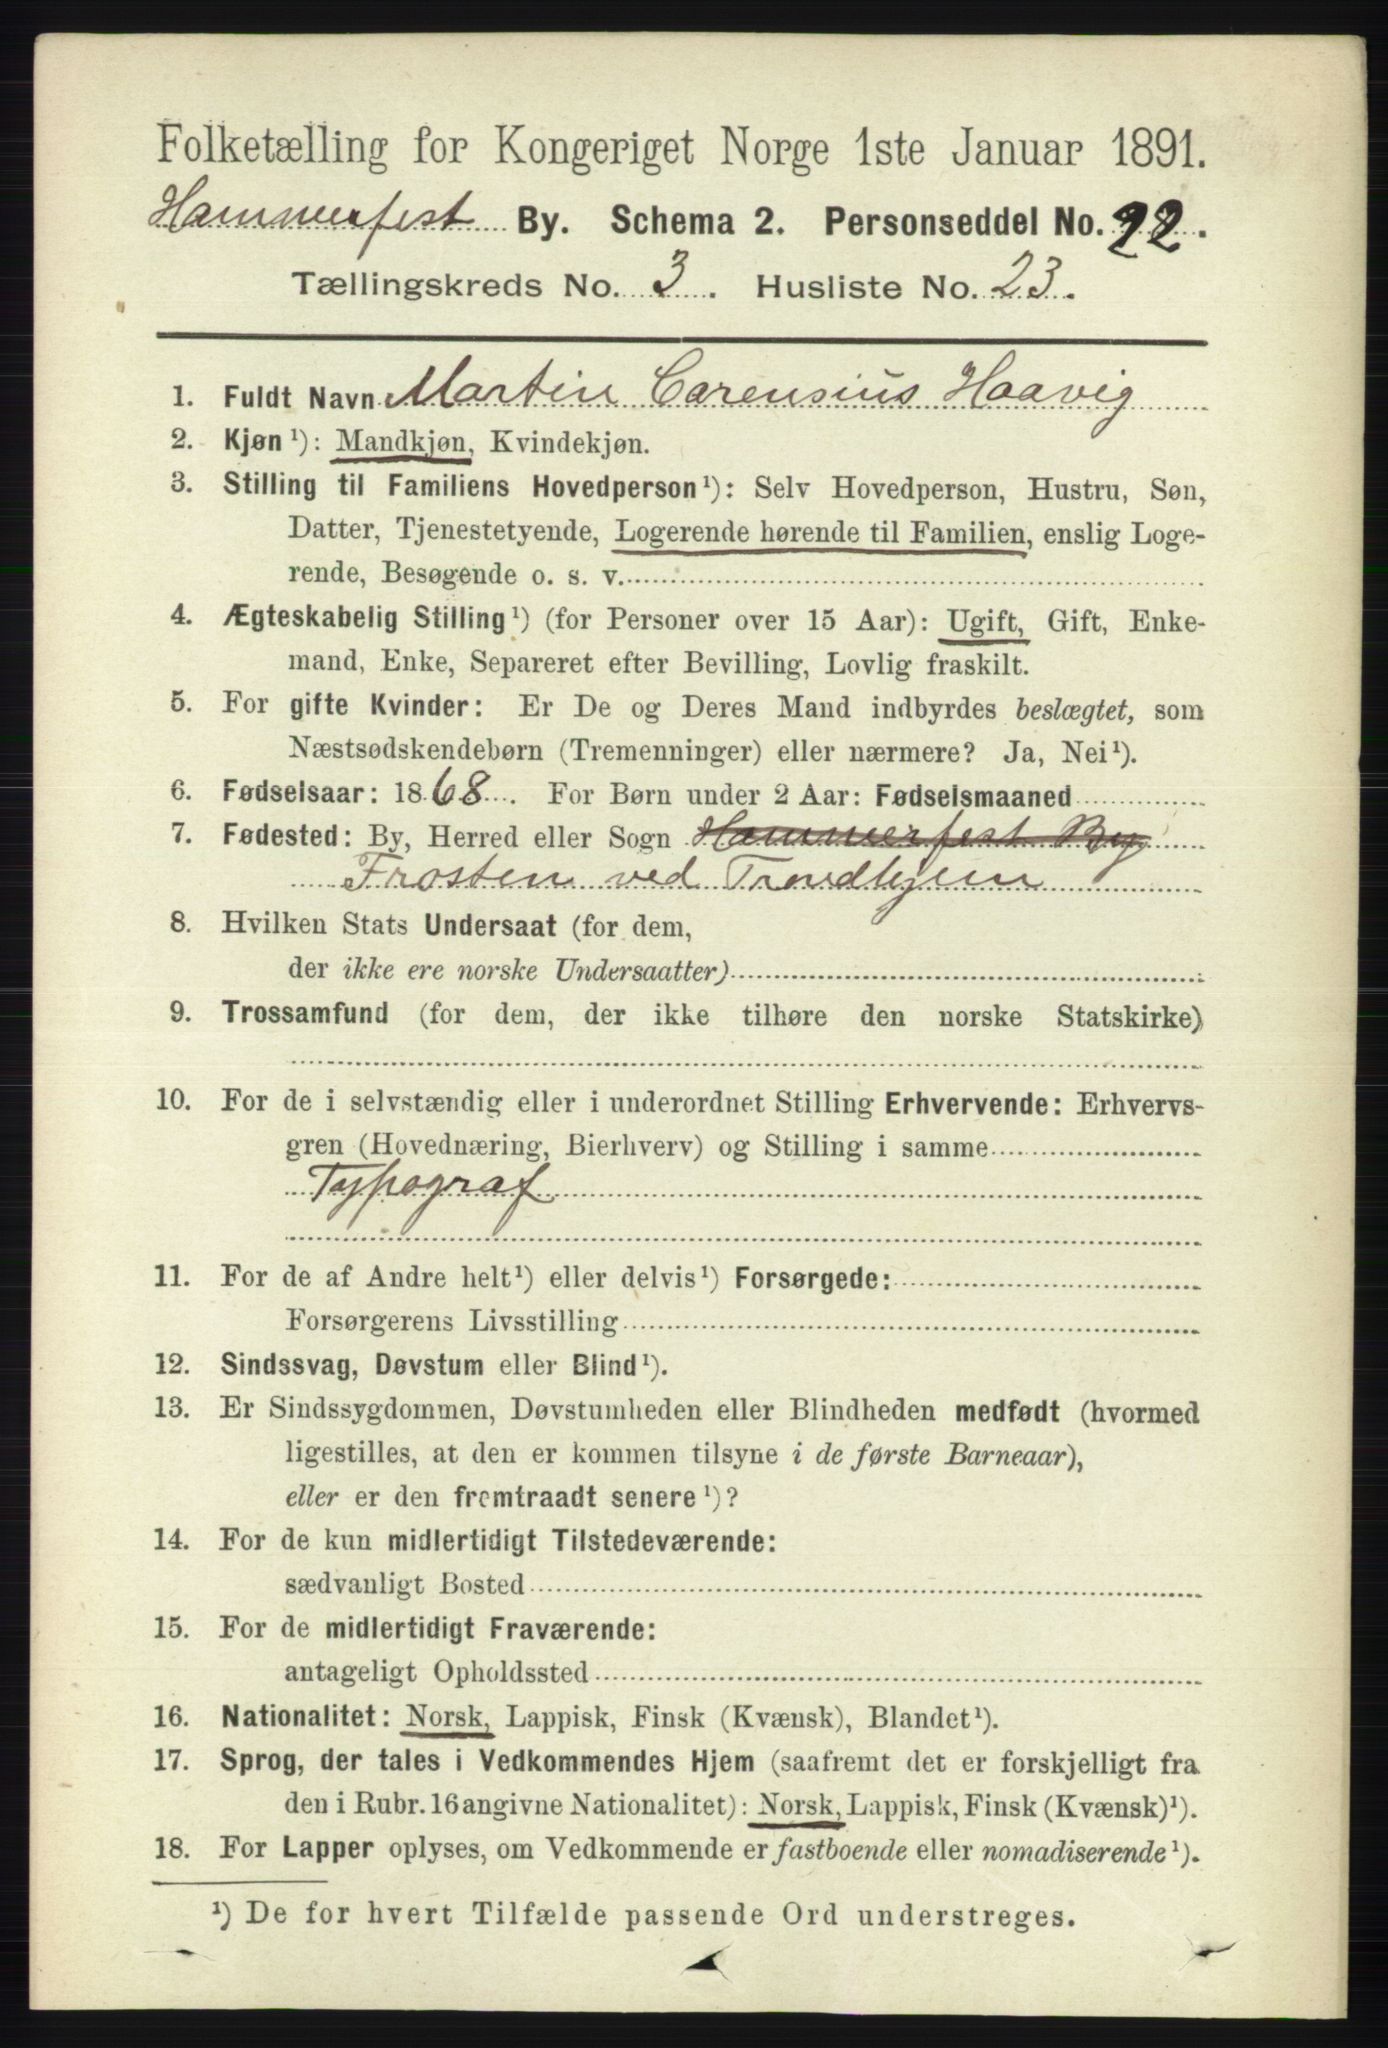 Folketælling for Kongeriget Norge 1ste Januar 1891.
Hammerfest By. Schema 2. Personseddel No. 22.
Tællingskreds No. 3. Husliste No. 23.
1. Fuldt Navn Martin Carensius Haavig
2. Kjøn¹): Mandkjøn, Kvindekjøn.
3. Stilling til Familiens Hovedperson¹): Selv Hovedperson, Hustru, Søn,
Datter, Tjenestetyende, Logerende hørende til Familien, enslig Loge-
rende, Besøgende o. s. v.
4. Ægteskabelig Stilling¹) (for Personer over 15 Aar): Ugift, Gift, Enke-
mand, Enke, Separeret efter Bevilling, Lovlig fraskilt.
5. For gifte Kvinder: Er De og Deres Mand indbyrdes beslægtet, som
Næstsødskendebørn (Tremenninger) eller nærmere? Ja, Nei¹).
6. Fødselsaar: 1868. For Børn under 2 Aar: Fødselsmaaned
7. Fødested: By, Herred eller Sogn Hammerfest By
Frosten ved Trondhjem
8. Hvilken Stats Undersaat (for dem,
der ikke ere norske Undersaatter)
9. Trossamfund (for dem, der ikke tilhøre den norske Statskirke)
10. For de i selvstændig eller i underordnet Stilling Erhvervende: Erhvervs-
gren (Hovednæring, Bierhverv) og Stilling i samme
Typograf
11. For de af Andre helt¹) eller delvis¹) Forsørgede:
Forsørgerens Livsstilling
12. Sindssvag, Døvstum eller Blind¹).
13. Er Sindssygdommen, Døvstumheden eller Blindheden medfødt (hvormed
ligestilles, at den er kommen tilsyne i de første Barneaar),
eller er den fremtraadt senere¹)?
14. For de kun midlertidigt Tilstedeværende:
sædvanligt Bosted
15. For de midlertidigt Fraværende:
antageligt Opholdssted
16. Nationalitet: Norsk, Lappisk, Finsk (Kvænsk), Blandet¹).
17. Sprog, der tales i Vedkommendes Hjem (saafremt det er forskjelligt fra
den i Rubr. 16 angivne Nationalitet): Norsk, Lappisk, Finsk (Kvænsk)¹).
18. For Lapper oplyses, om Vedkommende er fastboende eller nomadiserende¹).
¹) De for hvert Tilfælde passende Ord understreges.